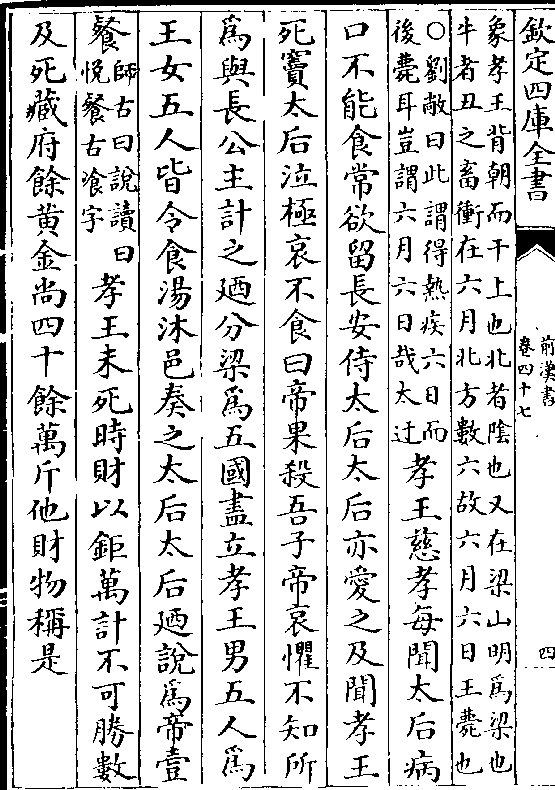 欽定四庫全書
前漢書
卷四十七
四
象孝王背朝而干上也北者陰也又在梁山明爲梁也
牛者丑之畜衝在六月北方數六故六月六日王薨也
○劉敞曰此謂得熱疾六日而
後薨耳豈謂六月六日哉太迂
孝王慈孝每聞太后病
口不能食常欲留長安侍太后太后亦愛之及聞孝王
死竇太后泣極哀不食曰帝果殺吾子帝哀懼不知所
爲與長公主計之廼分梁爲五國盡立孝王男五人爲
王女五人皆令食湯沐邑奏之太后太后廼說爲帝壹
餐
師古曰說讀曰
悅餐古飡字
孝王未死時財以鉅萬計不可勝數
及死藏府餘黃金尚四十餘萬斤他財物稱是